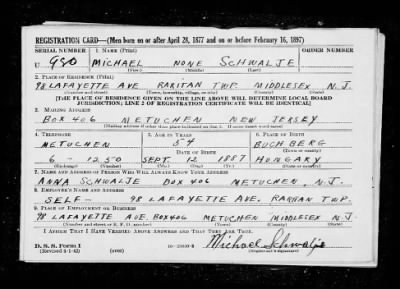 REGISTRATION CARD—(Men born on or after April 28, 1877 and on or before February 16, 1897)
SERIAL NUMBER 1. NAME (Print) ORDER NUMBER
U 980 MICHAEL NONE SCHWALJE
(First) (Middle) (Last)
2. PLACE OF RESIDENCE (Print)
98 LAFAYETTE AVE RARITAN TWP. MIDDLESEX N.J.
(Number and street) (Town, township, village, or city) (County) (State)
[THE PLACE OF RESIDENCE GIVEN ON THE LINE ABOVE WILL DETERMINE LOCAL BOARD
JURISDICTION; LINE 2 OF REGISTRATION CERTIFICATE WILL BE IDENTICAL]
3. MAILING ADDRESS
BOX 406 METUCHEN NEW JERSEY
[Mailing address if other than place indicated on line 2. If same insert word same]
4. TELEPHONE 5. AGE IN YEARS 6. PLACE OF BIRTH
METUCHEN 54 BUCHBERG
DATE OF BIRTH (Town or county)
6 - 1250 SEPT. 12 1887 HUNGARY
(Exchange) (Number) (Mo.) (Day) (Yr.) (State or country)
7. NAME AND ADDRESS OF PERSON WHO WILL ALWAYS KNOW YOUR ADDRESS
ANNA SCHWALJE BOX 406 METUCHEN, N.J.
8. EMPLOYER'S NAME AND ADDRESS
SELF- 98 LAFAYETTE AVE. RARITAN TWP.
9. PLACE OF EMPLOYMENT OR BUSINESS
98 LAFAYETTE AVE. BOX 406 METUCHEN MIDDLESEX N.J.
(Number and street or R. F. D. number) (Town) (County) (State)
I AFFIRM THAT I HAVE VERIFIED ABOVE ANSWERS AND THAT THEY ARE TRUE.
D. S. S. Form 1
(Revised 4-1-42) (over) Michael Schwalje